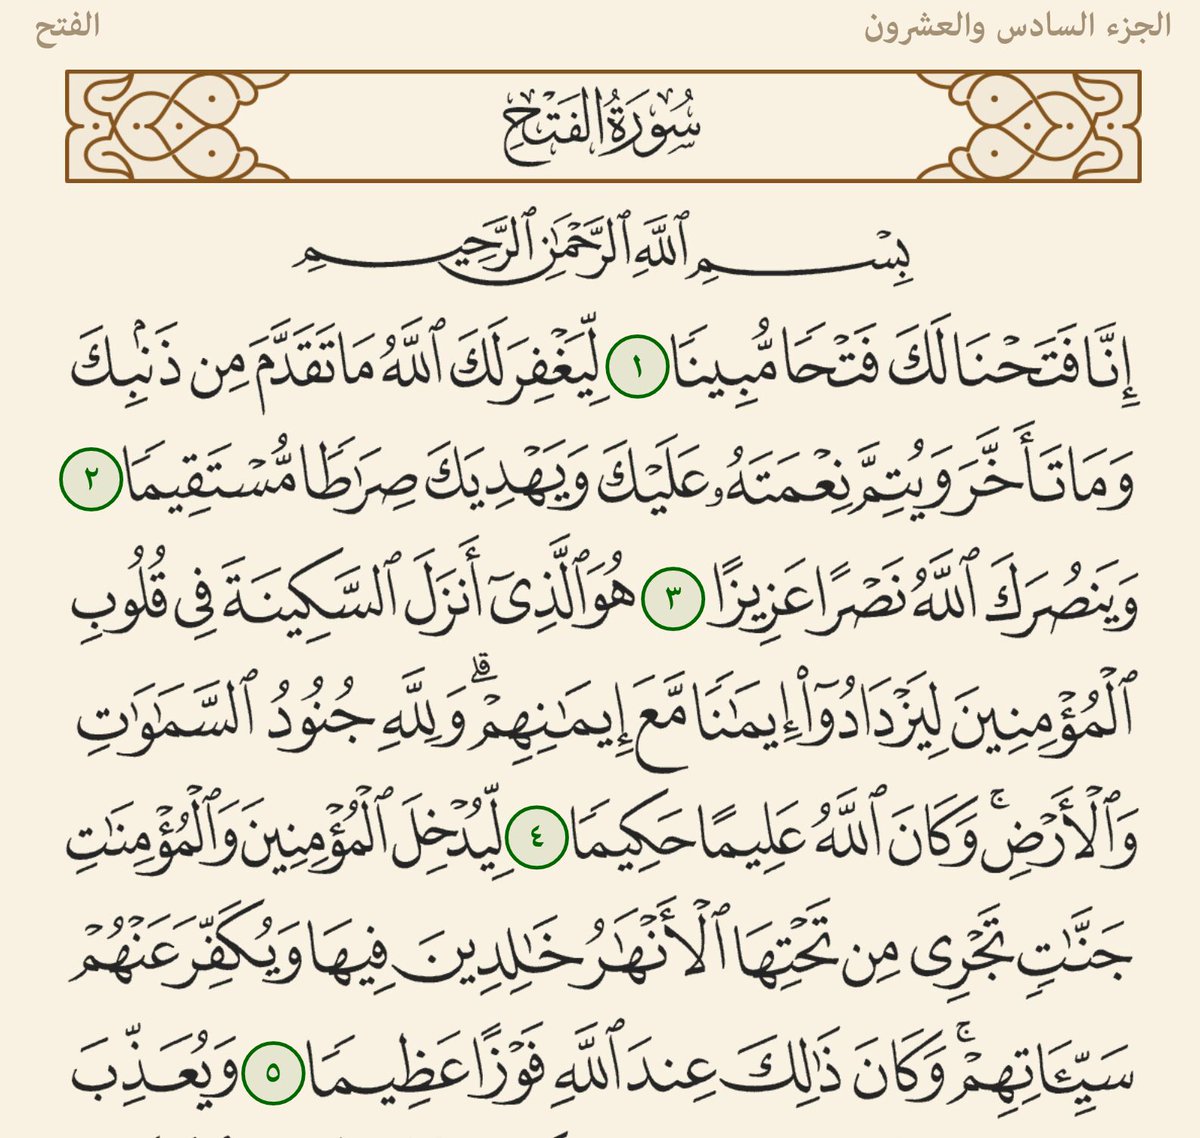 الجزء السادس والعشرون
الفتح
سُورَةُ الفَتْحِ
بِسْمِ ٱللَّهِ ٱلرَّحْمَٰنِ ٱلرَّحِيمِ
إِنَّا فَتَحْنَا لَكَ فَتْحًا مُّبِينًا ١ لِّيَغْفِرَ لَكَ ٱللَّهُ مَا تَقَدَّمَ مِن ذَنۢبِكَ
وَمَا تَأَخَّرَ وَيُتِمَّ نِعْمَتَهُۥ عَلَيْكَ وَيَهْدِيَكَ صِرَٰطًا مُّسْتَقِيمًا ٢
وَيَنصُرَكَ ٱللَّهُ نَصْرًا عَزِيزًا ٣ هُوَ ٱلَّذِىٓ أَنزَلَ ٱلسَّكِينَةَ فِى قُلُوبِ
ٱلْمُؤْمِنِينَ لِيَزْدَادُوٓا۟ إِيمَٰنًا مَّعَ إِيمَٰنِهِمْ ۗ وَلِلَّهِ جُنُودُ ٱلسَّمَٰوَٰتِ
وَٱلْأَرْضِ ۚ وَكَانَ ٱللَّهُ عَلِيمًا حَكِيمًا ٤ لِّيُدْخِلَ ٱلْمُؤْمِنِينَ وَٱلْمُؤْمِنَٰتِ
جَنَّٰتٍ تَجْرِى مِن تَحْتِهَا ٱلْأَنْهَٰرُ خَٰلِدِينَ فِيهَا وَيُكَفِّرَ عَنْهُمْ
سَيِّـَٔاتِهِمْ ۚ وَكَانَ ذَٰلِكَ عِندَ ٱللَّهِ فَوْزًا عَظِيمًا ٥ وَيُعَذِّبَ